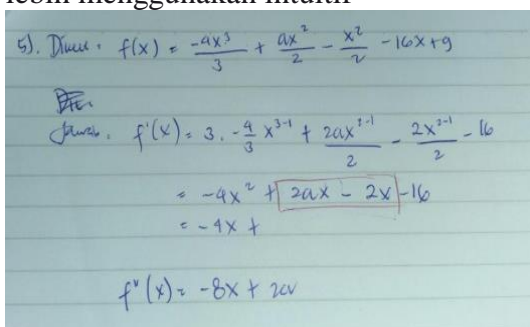 lebih menggunakan intuitif
5). Diket : f(x) = -4x³/3 + ax²/2 - x²/2 - 16x + 9
Jawab. f'(x) = 3 . -4/3 x³⁻¹ + 2ax²⁻¹/2 - 2x²⁻¹/2 - 16
= -4x² + 2ax - 2x - 16
= -4x +
f"(x) = -8x +